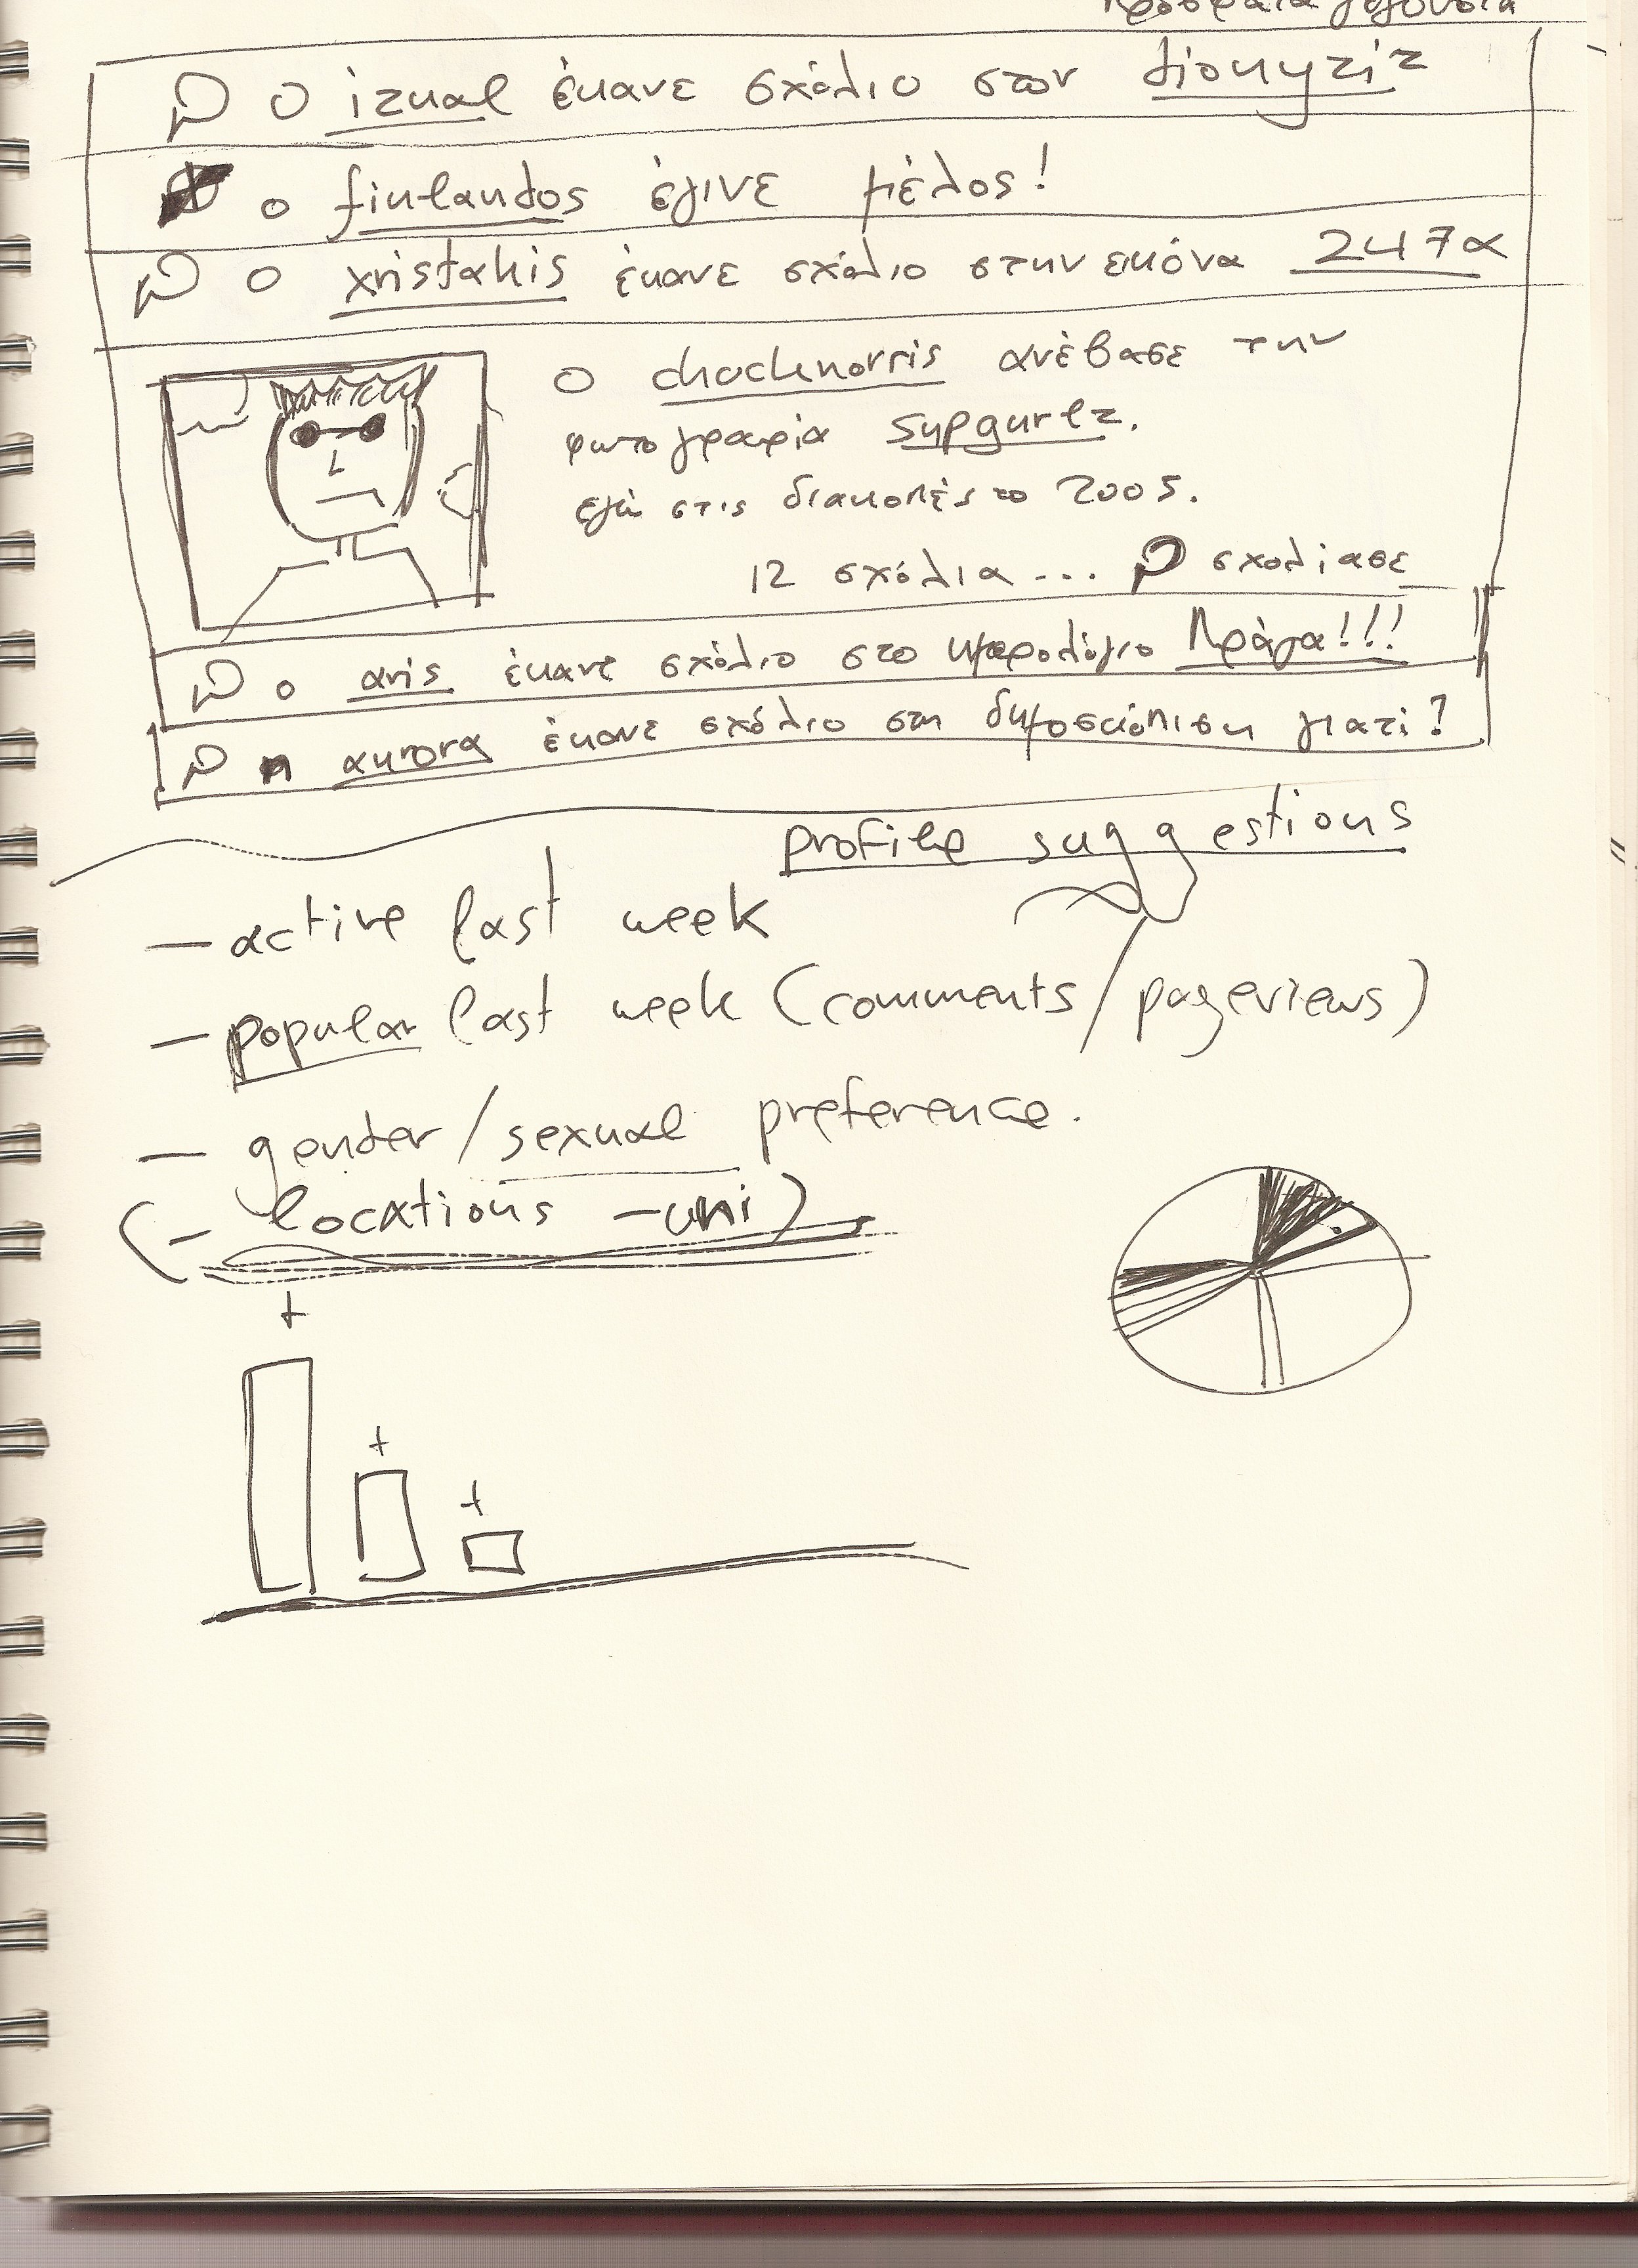 Πρόσφατα γεγονότα
Ο izual έκανε σχόλιο στον dionyziz
ο finlandos έγινε μέλος!
Ο xristakis έκανε σχόλιο στην εικόνα 247α
Ο chucknorris ανέβασε την
φωτογραφία
εγώ στις διακοπές το 2005.
12 σχόλια... σχολίασε
ο aris έκανε σχόλιο στο ημερολόγιο Πράγα!!!
η aurora έκανε σχόλιο στη δημοσκόπιση γιατί?
profile suggestions
— active last week
— popular last week (comments/pageviews)
— gender/sexual preference.
(— locations — uni)
+
+
+